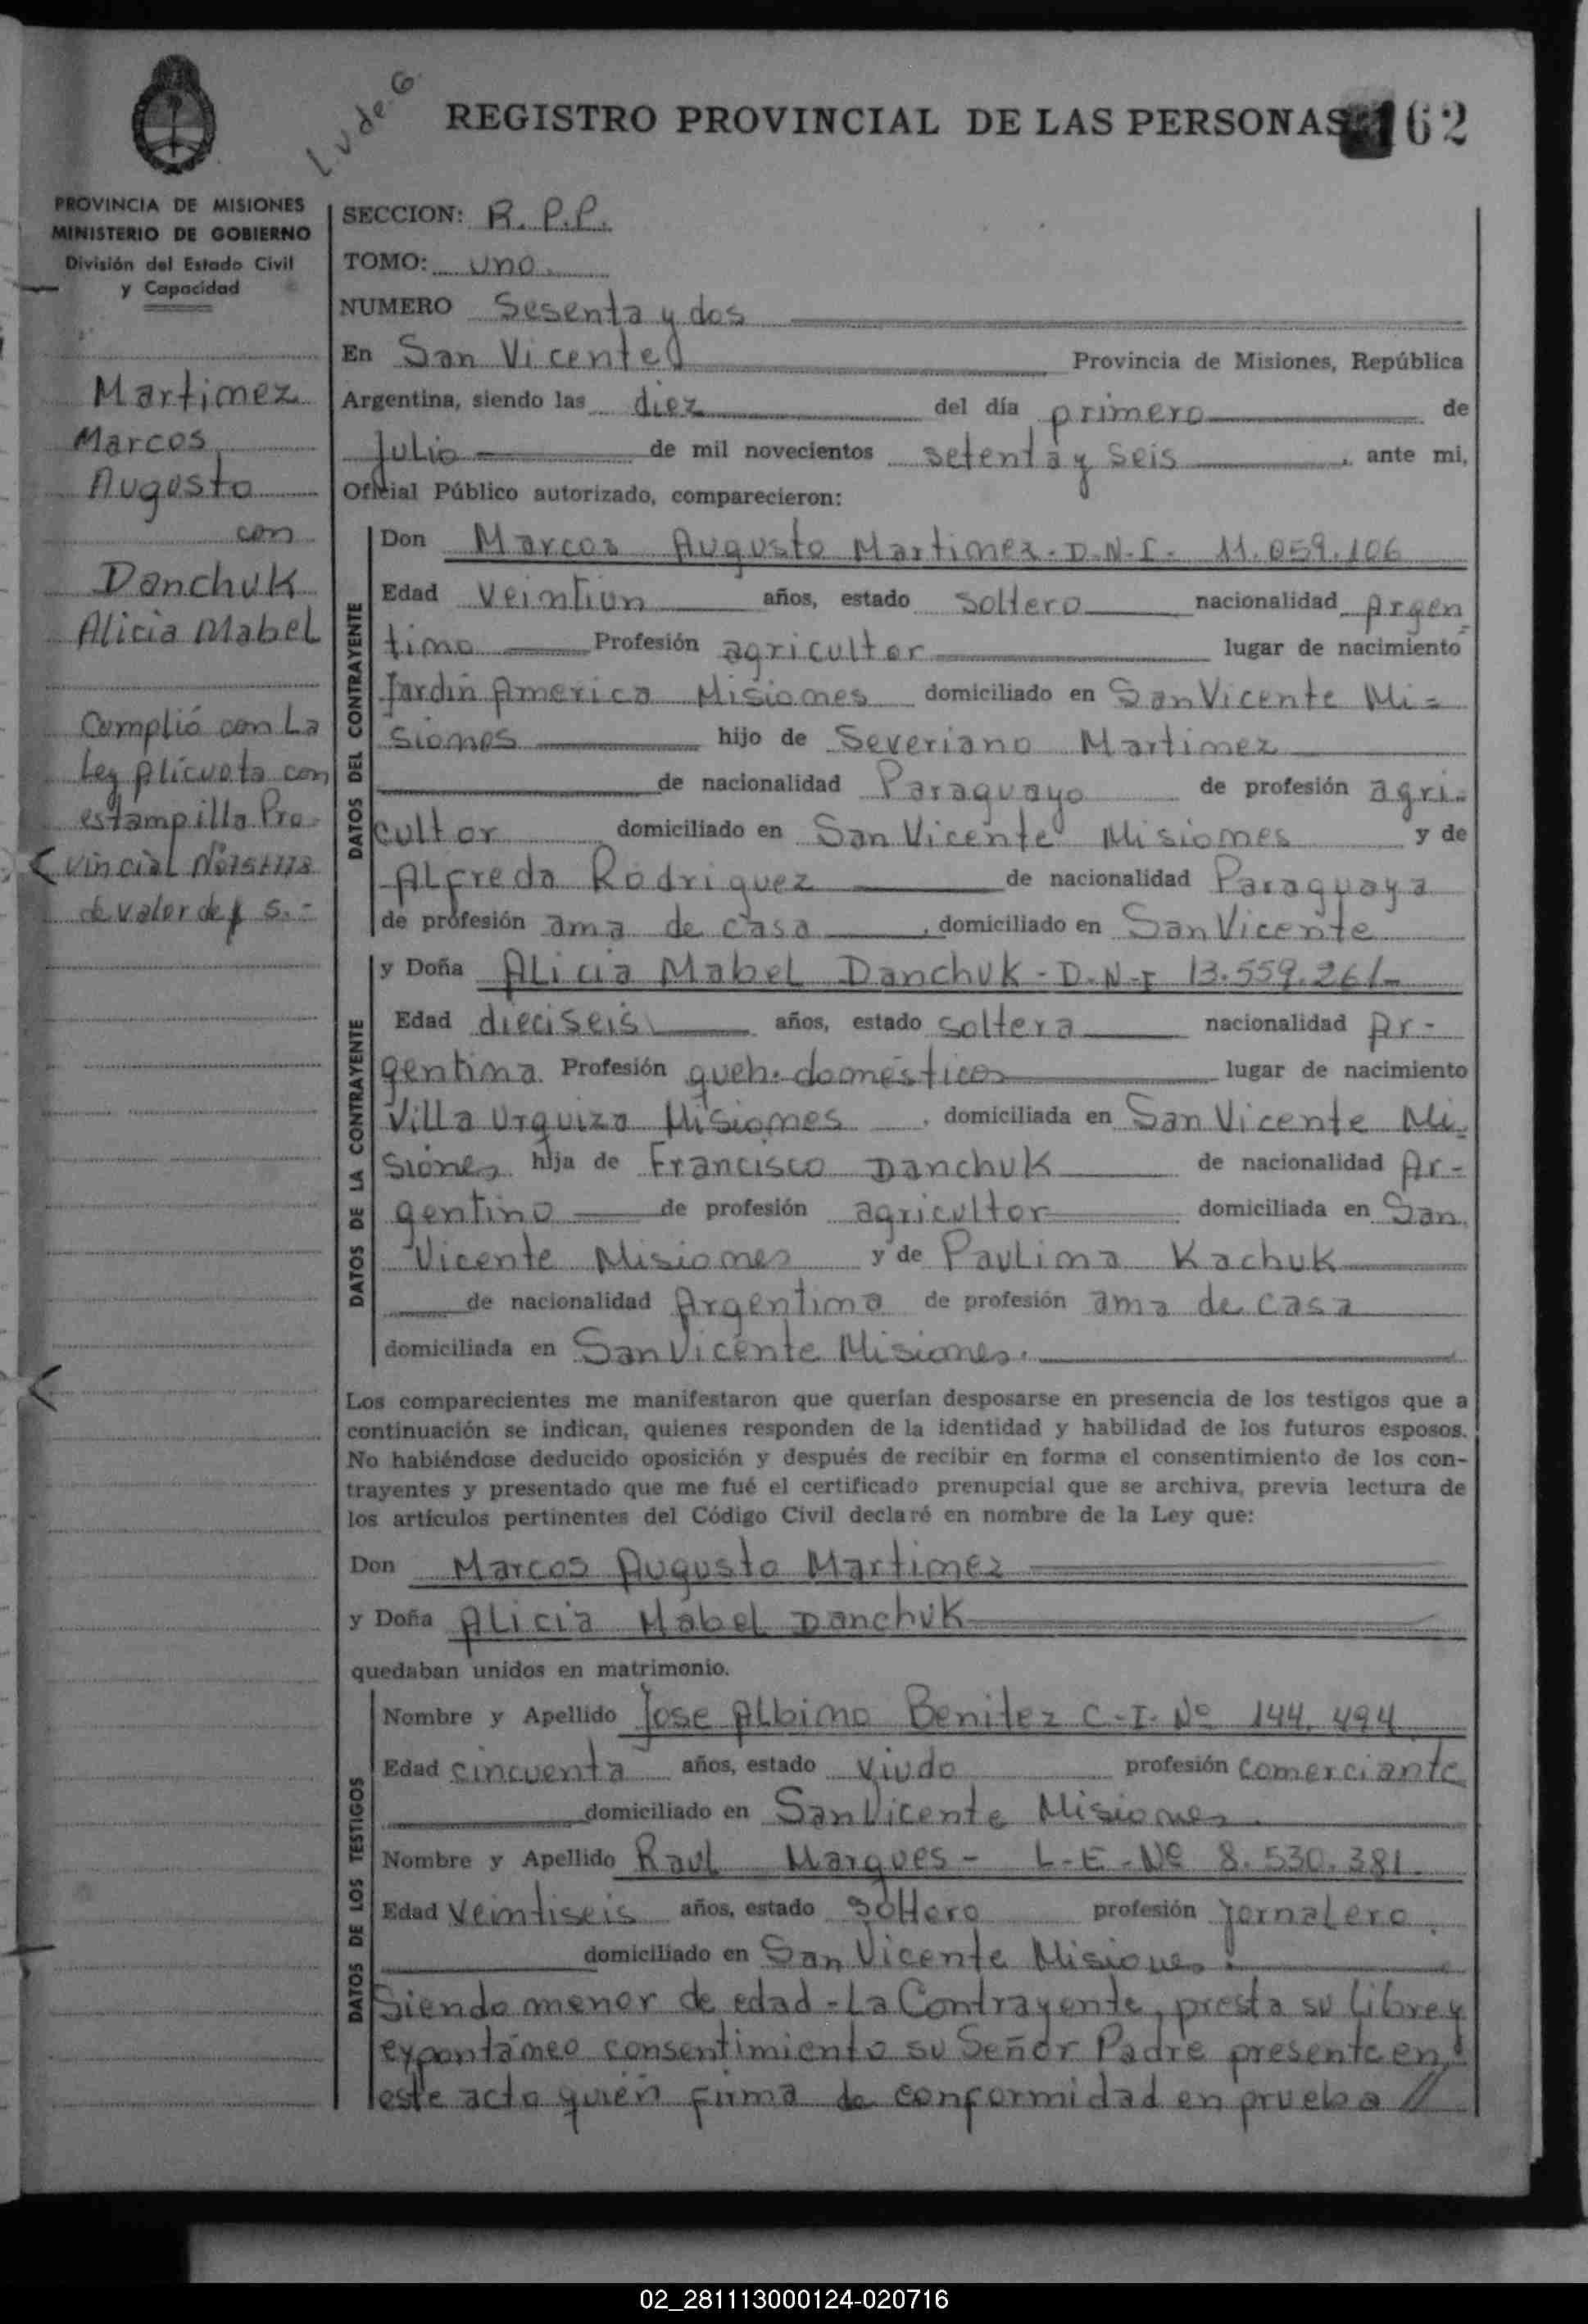 L. V de G
REGISTRO PROVINCIAL DE LAS PERSONAS 162
PROVINCIA DE MISIONES
MINISTERIO DE GOBIERNO
División del Estado Civil
y Capacidad
Martinez
Marcos
Augusto
con
Danchuk
Alicia Mabel
Cumplió con La
Ley con
estampilla Pro-
vincial Nº
de valor de $ 5.-
SECCION: R.P.P.
TOMO: uno.
NUMERO Sesenta y dos
En San Vicente Provincia de Misiones, República
Argentina, siendo las diez del día primero de
Julio de mil novecientos setenta y seis, ante mi,
Oficial Público autorizado, comparecieron:
DATOS DEL CONTRAYENTE
Don Marcos Augusto Martinez - D.N.I. 11.059.106
Edad Veintiun años, estado soltero nacionalidad Argen
tino Profesión agricultor lugar de nacimiento
Jardin America Misiones domiciliado en San Vicente Mi-
siones hijo de Severiano Martinez
de nacionalidad Paraguayo de profesión agri-
cultor domiciliado en San Vicente Misiones y de
Alfreda Rodriguez de nacionalidad Paraguaya
de profesión ama de casa, domiciliado en San Vicente
DATOS DE LA CONTRAYENTE
y Doña Alicia Mabel Danchuk - D.N.I 13.559.261-
Edad dieciseis años, estado soltera nacionalidad Ar-
gentina Profesión queh. domésticos lugar de nacimiento
Villa Urquiza Misiones, domiciliada en San Vicente Mi-
siones hija de Francisco Danchuk de nacionalidad Ar-
gentino de profesión agricultor domiciliada en San
Vicente Misiones y de Paulina Kachuk
de nacionalidad Argentina de profesión ama de casa
domiciliada en San Vicente Misiones.
Los comparecientes me manifestaron que querían desposarse en presencia de los testigos que a
continuación se indican, quienes responden de la identidad y habilidad de los futuros esposos.
No habiéndose deducido oposición y después de recibir en forma el consentimiento de los con-
trayentes y presentado que me fué el certificado prenupcial que se archiva, previa lectura de
los artículos pertinentes del Código Civil declaré en nombre de la Ley que:
Don Marcos Augusto Martinez
y Doña Alicia Mabel Danchuk
quedaban unidos en matrimonio.
DATOS DE LOS TESTIGOS
Nombre y Apellido Jose Albino Benitez C.I. Nº 144.494
Edad cincuenta años, estado viudo profesión comerciante
domiciliado en San Vicente Misiones.
Nombre y Apellido Raul Marques - L-E-Nº 8.530.381.
Edad Veintiseis años, estado soltero profesión jornalero.
domiciliado en San Vicente Misiones.
Siendo menor de edad - La Contrayente, presta su libre y
expontáneo consentimiento su Señor Padre presente en
este acto quién firma de conformidad en prueba //
02_281113000124-020716